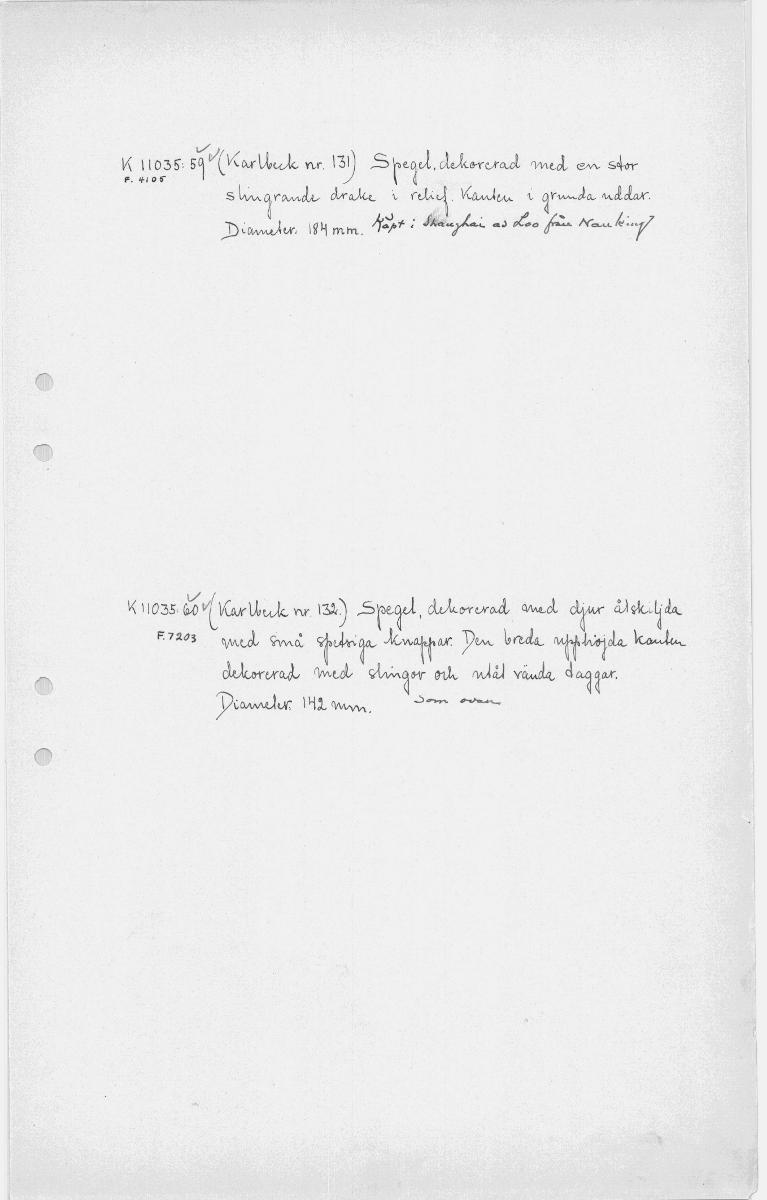 K 11035:59 (Karlbeck nr. 131) Spegel, dekorerad med en stor
F. 4105
slingrande drake i relief. Kanten i grunda uddar.
Diameter. 184 mm. Köpt i Shanghai av Loo från Nanking
K 11035:60 (Karlbeck nr. 132.) Spegel, dekorerad med djur åtskiljda
F. 7203
med små spetsiga knappar. Den breda upphöjda kanten
dekorerad med slingor och utåt vända taggar.
Diameter. 142 mm. som ovan